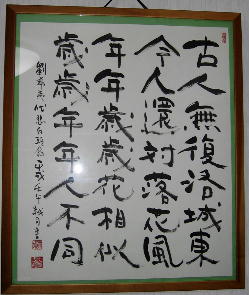 古人無復洛城東
今人還対落花風
年年歳歳花相似
歳歳年年人不同
劉希夷 代悲白頭翁